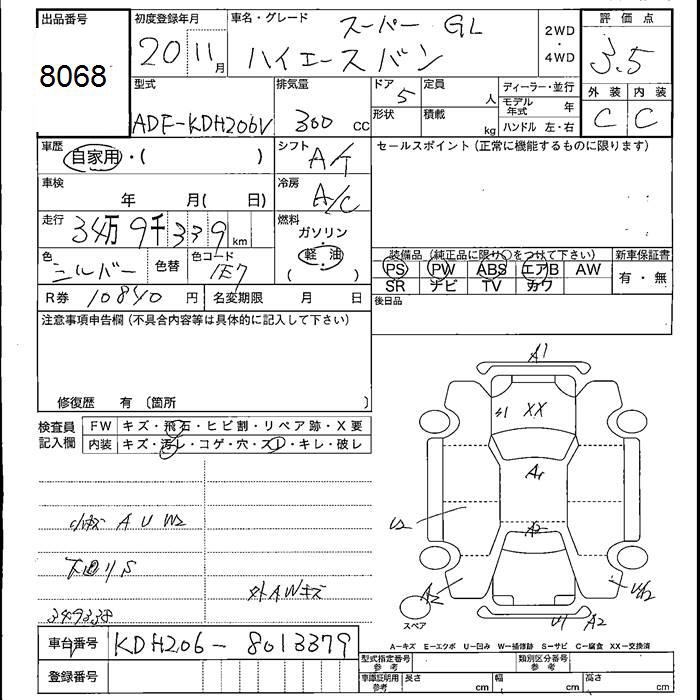 出品番号
8068
初度登録年月
20 11月
車名・グレード
スーパー GL
ハイエースバン
2WD
・
4WD
評価点
3.5
外装 内装
C C
型式
ADF-KDH206V
排気量
300 cc
ドア
5
定員
人
形状
積載
kg
ディーラー・並行
モデル年式 年
ハンドル 左・右
車歴
自家用・( )
シフト
A/T
セールスポイント(正常に機能するものに限ります)
車検
年 月( 日)
冷房
A/C
走行
34万9千339km
燃料
ガソリン
・
軽油
( )
色
シルバー
色替
色コード
1E7
装備品(純正品に限り○をつけて下さい)
PS PW ABS エアB AW
SR ナビ TV カワ
新車保証書
有・無
R券 10840 円
名変期限 月 日
後日品
注意事項申告欄(不具合内容等は具体的に記入して下さい)
修復歴 有 〔箇所 〕
検査員記入欄
FW キズ・飛石・ヒビ割・リペア跡・X要
内装 キズ・汚レ・コゲ・穴・スレ・キレ・破レ
A U W2
下回リS
外AWキズ
349338
A1
S1 XX
A1
A2
U2
A2
U1 A2
スペア
A−キズ E−エクボ U−凹み W−補修跡 S−サビ C−腐食 XX−交換済
車台番号
KDH206-8013379
登録番号
型式指定番号 参考
類別区分番号 参考
車庫証明用 参考
長さ cm
幅 cm
高さ cm